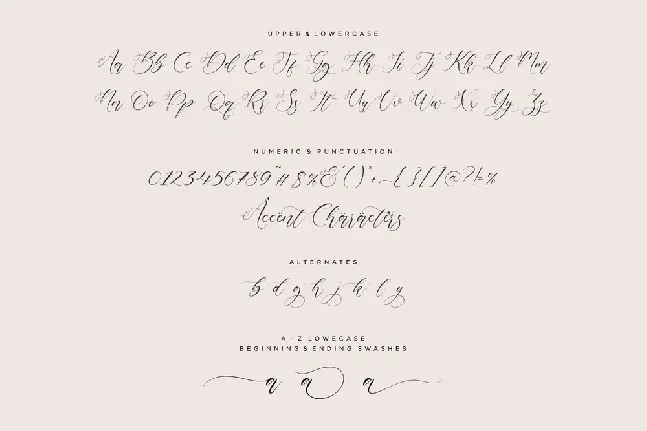 UPPER & LOWERCASE
Aa Bb Cc Dd Ee Ff Gg Hh Ii Jj Kk Ll Mm
Nn Oo Pp Qq Rr Ss Tt Uu Vv Ww Xx Yy Zz
NUMERIC & PUNCTUATION
0123456789"#$%&'()*+,-{}[]@?!=%
Accent Characters
ALTERNATES
b d g h j k l y
A - Z LOWECASE
BEGINNING & ENDING SWASHES
a a a